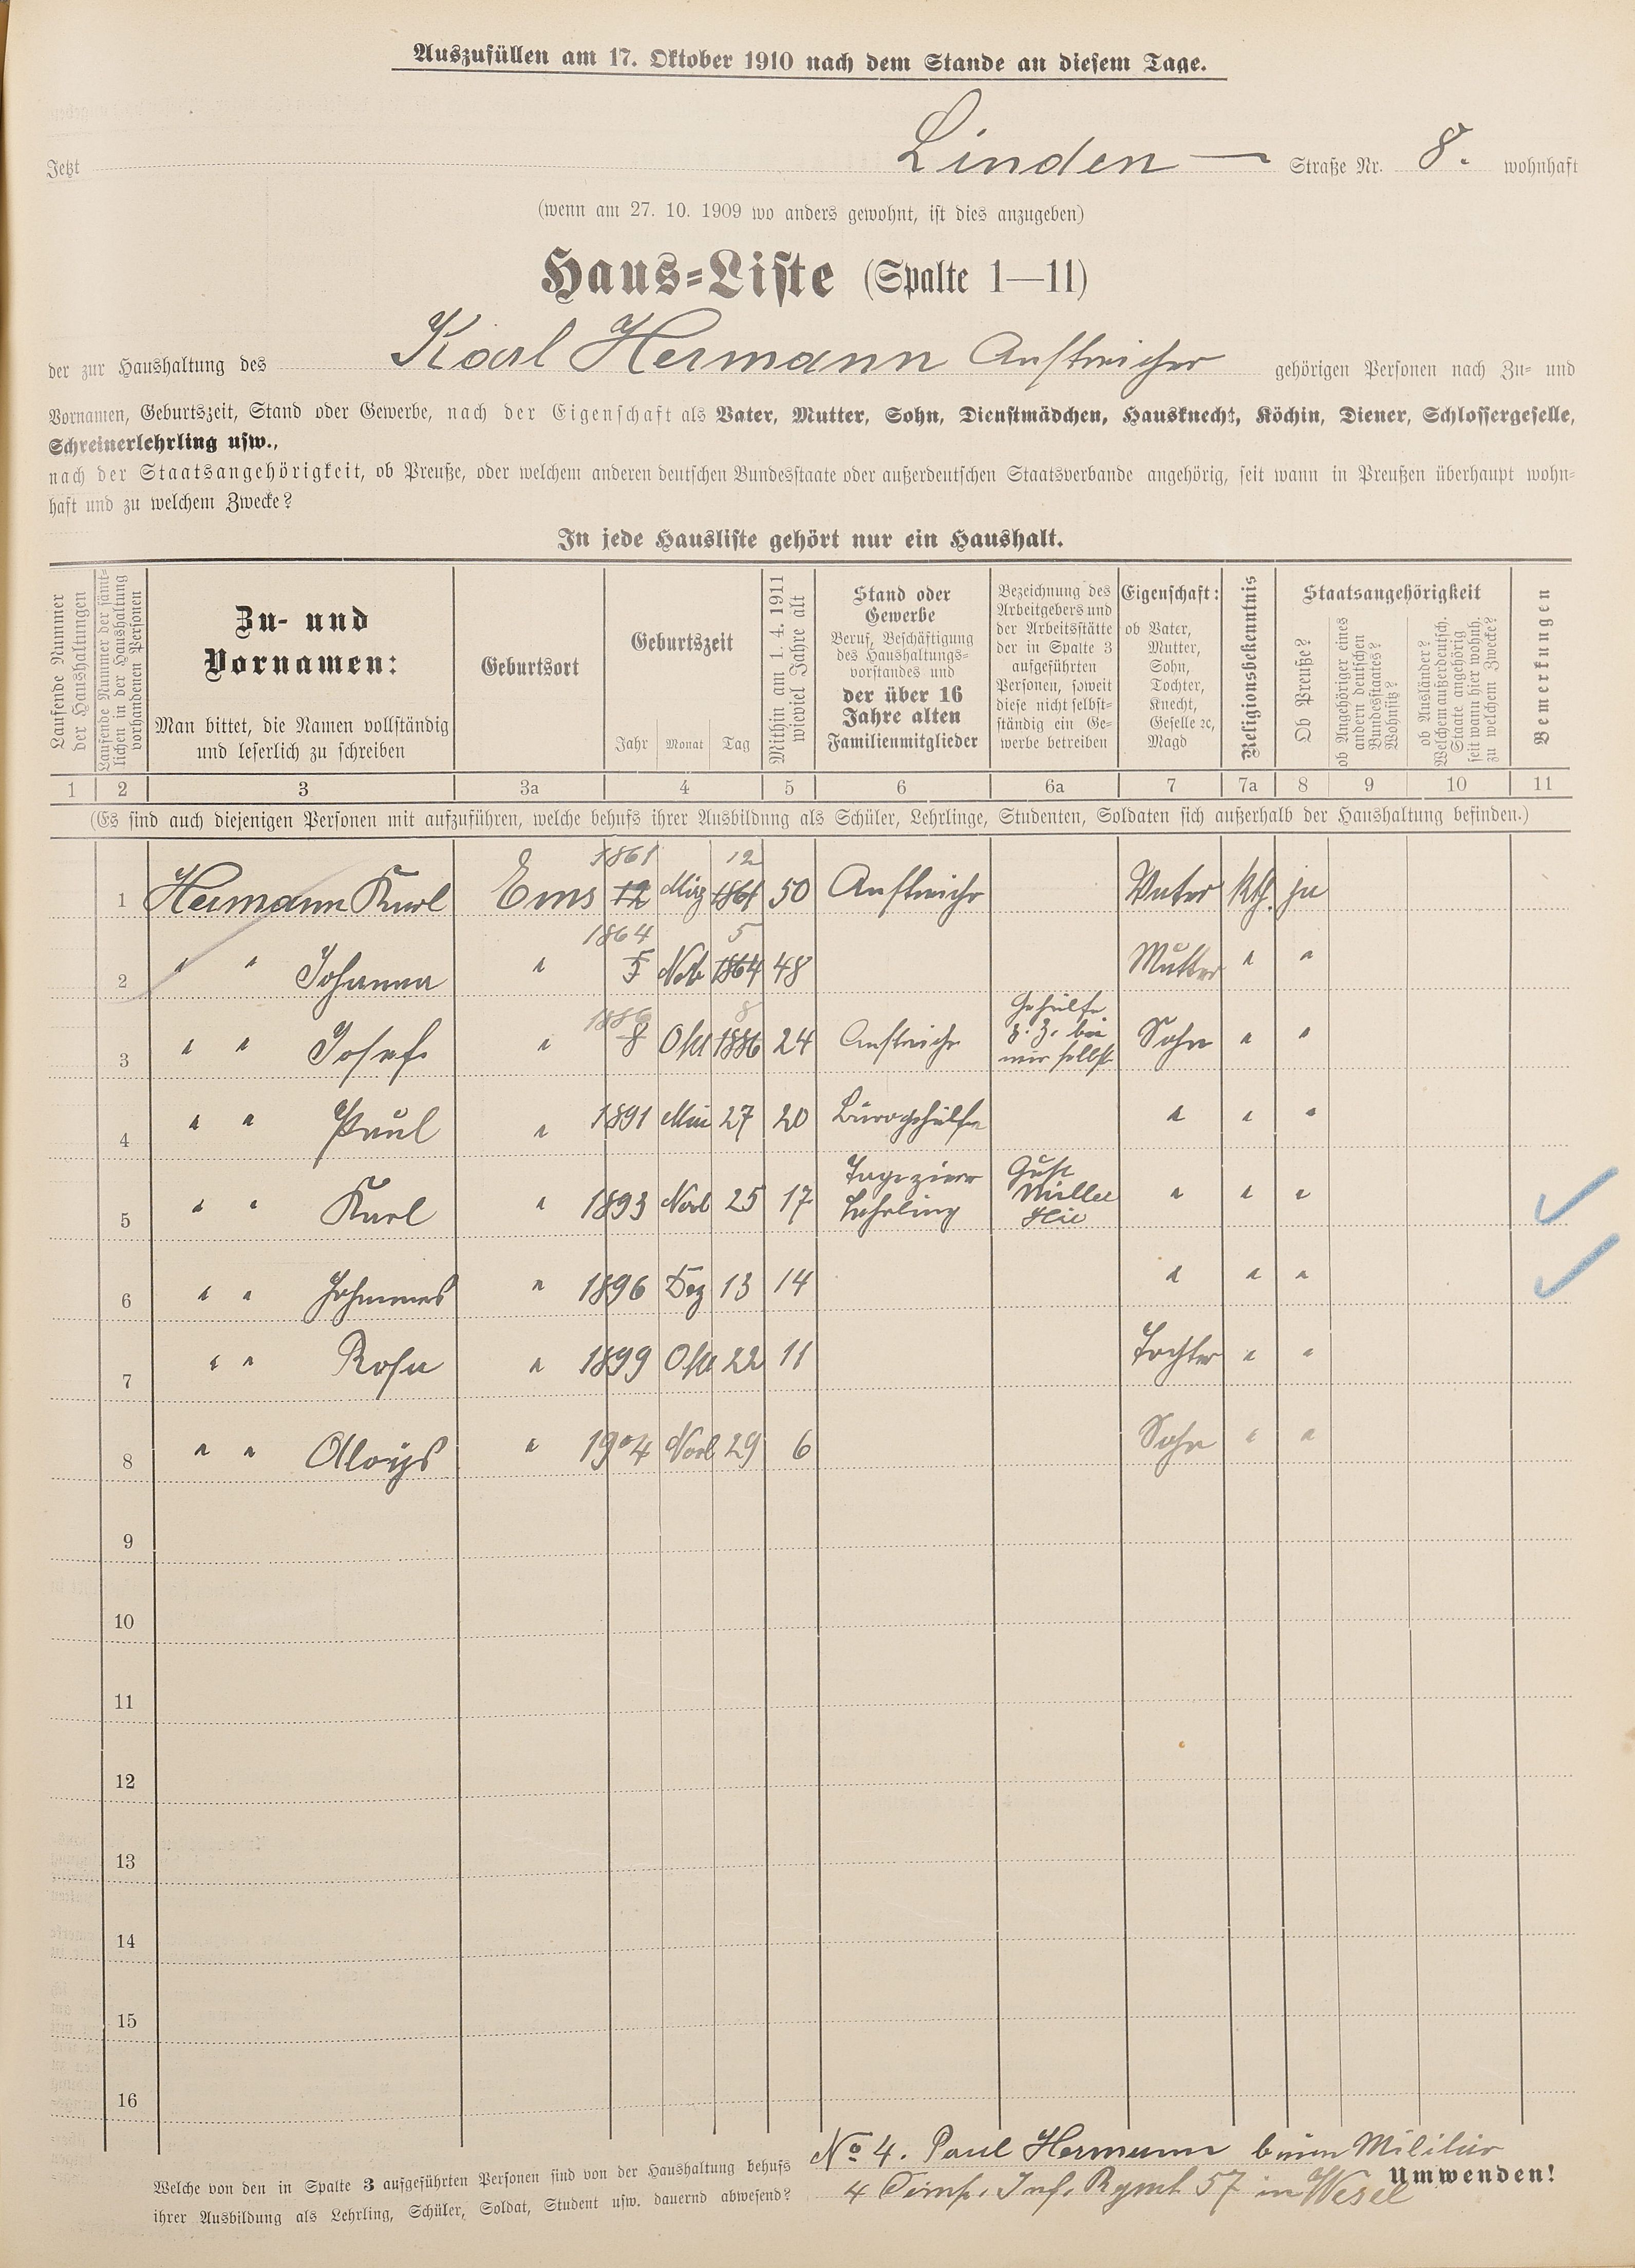 Auszufüllen am 17. Oktober 1910 nach dem Stande an diesem Tage.
Jetzt Linden — Straße Nr. 8. wohnhaft
(wenn am 27. 10. 1909 wo anders gewohnt, ist dies anzugeben)
Haus-Liste (Spalte 1—11)
der zur Haushaltung des Karl Hermann Anstreicher gehörigen Personen nach Zu- und
Vornamen, Geburtszeit, Stand oder Gewerbe, nach der Eigenschaft als Vater, Mutter, Sohn, Dienstmädchen, Hausknecht, Köchin, Diener, Schlossergeselle,
Schreinerlehrling usw.,
nach der Staatsangehörigkeit, ob Preuße, oder welchem anderen deutschen Bundesstaate oder außerdeutschen Staatsverbande angehörig, seit wann in Preußen überhaupt wohn-
haft und zu welchem Zwecke?
In jede Hausliste gehört nur ein Haushalt.
Laufende Nummer
der Haushaltungen
Laufende Nummer der sämt-
lichen in der Haushaltung
vorhandenen Personen
Zu- und
Vornamen:
Man bittet, die Namen vollständig
und leserlich zu schreiben
Geburtsort
Geburtszeit
Jahr Monat Tag
Mithin am 1. 4. 1911
wieviel Jahre alt
Stand oder
Gewerbe
Beruf, Beschäftigung
des Haushaltungs-
vorstandes und
der über 16
Jahre alten
Familienmitglieder
Bezeichnung des
Arbeitgebers und
der Arbeitsstätte
der in Spalte 3
aufgeführten
Personen, soweit
diese nicht selbst-
ständig ein Ge-
werbe betreiben
Eigenschaft:
ob Vater,
Mutter,
Sohn,
Tochter,
Knecht,
Geselle ꝛc,
Magd
Religionsbekenntnis
Staatsangehörigkeit
Ob Preuße?
ob Angehöriger eines
andern deutschen
Bundesstaates?
Wohnsitz?
ob Ausländer?
Welchem außerdeutsch.
Staate angehörig
seit wann hier wohnh.
zu welchem Zwecke?
Bemerkungen
1 2 3 3a 4 5 6 6a 7 7a 8 9 10 11
(Es sind auch diejenigen Personen mit aufzuführen, welche behufs ihrer Ausbildung als Schüler, Lehrlinge, Studenten, Soldaten sich außerhalb der Haushaltung befinden.)
1861 12
1 Hermann Karl Ems 12 März 1861 50 Anstreicher Vater kth. ja
1864 5
2 " " Johanna " 5 Nob 1864 48 Mutter " "
1886 8
3 " " Josef " 8 Okt 1886 24 Anstreicher Gehülfe z. Z. bei mir selbst Sohn " "
4 " " Paul " 1891 Mai 27 20 Bürogehülfe " " "
5 " " Karl " 1893 Nov 25 17 Tapezierer Lehrling Gust Müller Hie " " "
6 " " Johannes " 1896 Dez 13 14 " " "
7 " " Rosa " 1899 Okt 22 11 Tochter " "
8 " " Aloys " 1904 Nov 29 6 Sohn " "
9
10
11
12
13
14
15
16
Welche von den in Spalte 3 aufgeführten Personen sind von der Haushaltung behufs
ihrer Ausbildung als Lehrling, Schüler, Soldat, Student usw. dauernd abwesend?
No 4. Paul Hermann beim Militär
4 Comp. Inf. Rgmt 57 in Wesel
Umwenden!